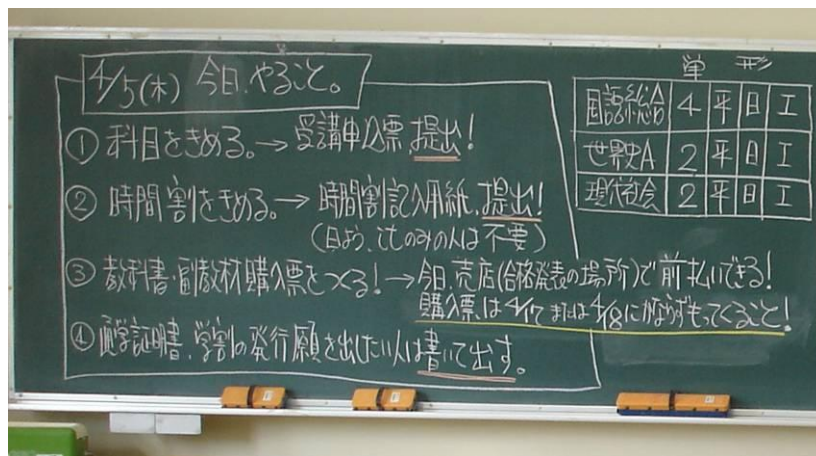 4/5(木) 今日、やること。
① 科目をきめる。→ 受講申込票 提出!
② 時間割をきめる。→ 時間割記入用紙、提出!
(日よう、ITのみの人は不要)
③ 教科書・副教材購入票をつくる! → 今日、売店(合格発表の場所)で前払いできる!
購入票は4/17または4/18にかならずもってくること!
④ 通学証明書、学割の発行願を出したい人は書いて出す。
単 形
国語総合 4 平 日 工
世界史A 2 平 日 工
現代社会 2 平 日 工